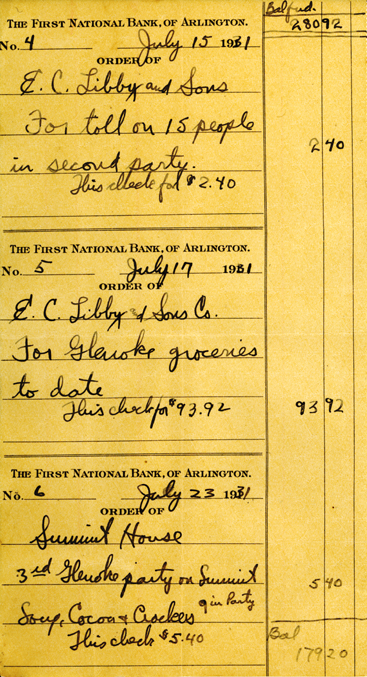 Bal fwd.
THE FIRST NATIONAL BANK, OF ARLINGTON. 280 92
No. 4 July 15 1931
ORDER OF
E. C. Libby and Sons
For toll on 15 people 2 40
in second party.
This check for $2.40
THE FIRST NATIONAL BANK, OF ARLINGTON.
No. 5 July 17 1931
ORDER OF
E. C. Libby & Sons Co.
For Glenoke groceries
to date
This check for $93.92 93 92
THE FIRST NATIONAL BANK, OF ARLINGTON.
No. 6 July 23 1931
ORDER OF
Summit House
3rd Glenoke party on Summit 5 40
9 in Party
Soup, Cocoa & Crackers
This check $5.40 Bal
179 20